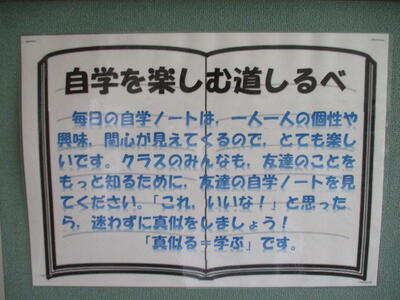 自学を楽しむ道しるべ
毎日の自学ノートは，一人一人の個性や
興味，関心が見えてくるので，とても楽し
いです。クラスのみんなも，友達のことを
もっと知るために，友達の自学ノートを見
てください。「これ，いいな！」と思った
ら，迷わずに真似をしましょう！
「真似る＝学ぶ」です。